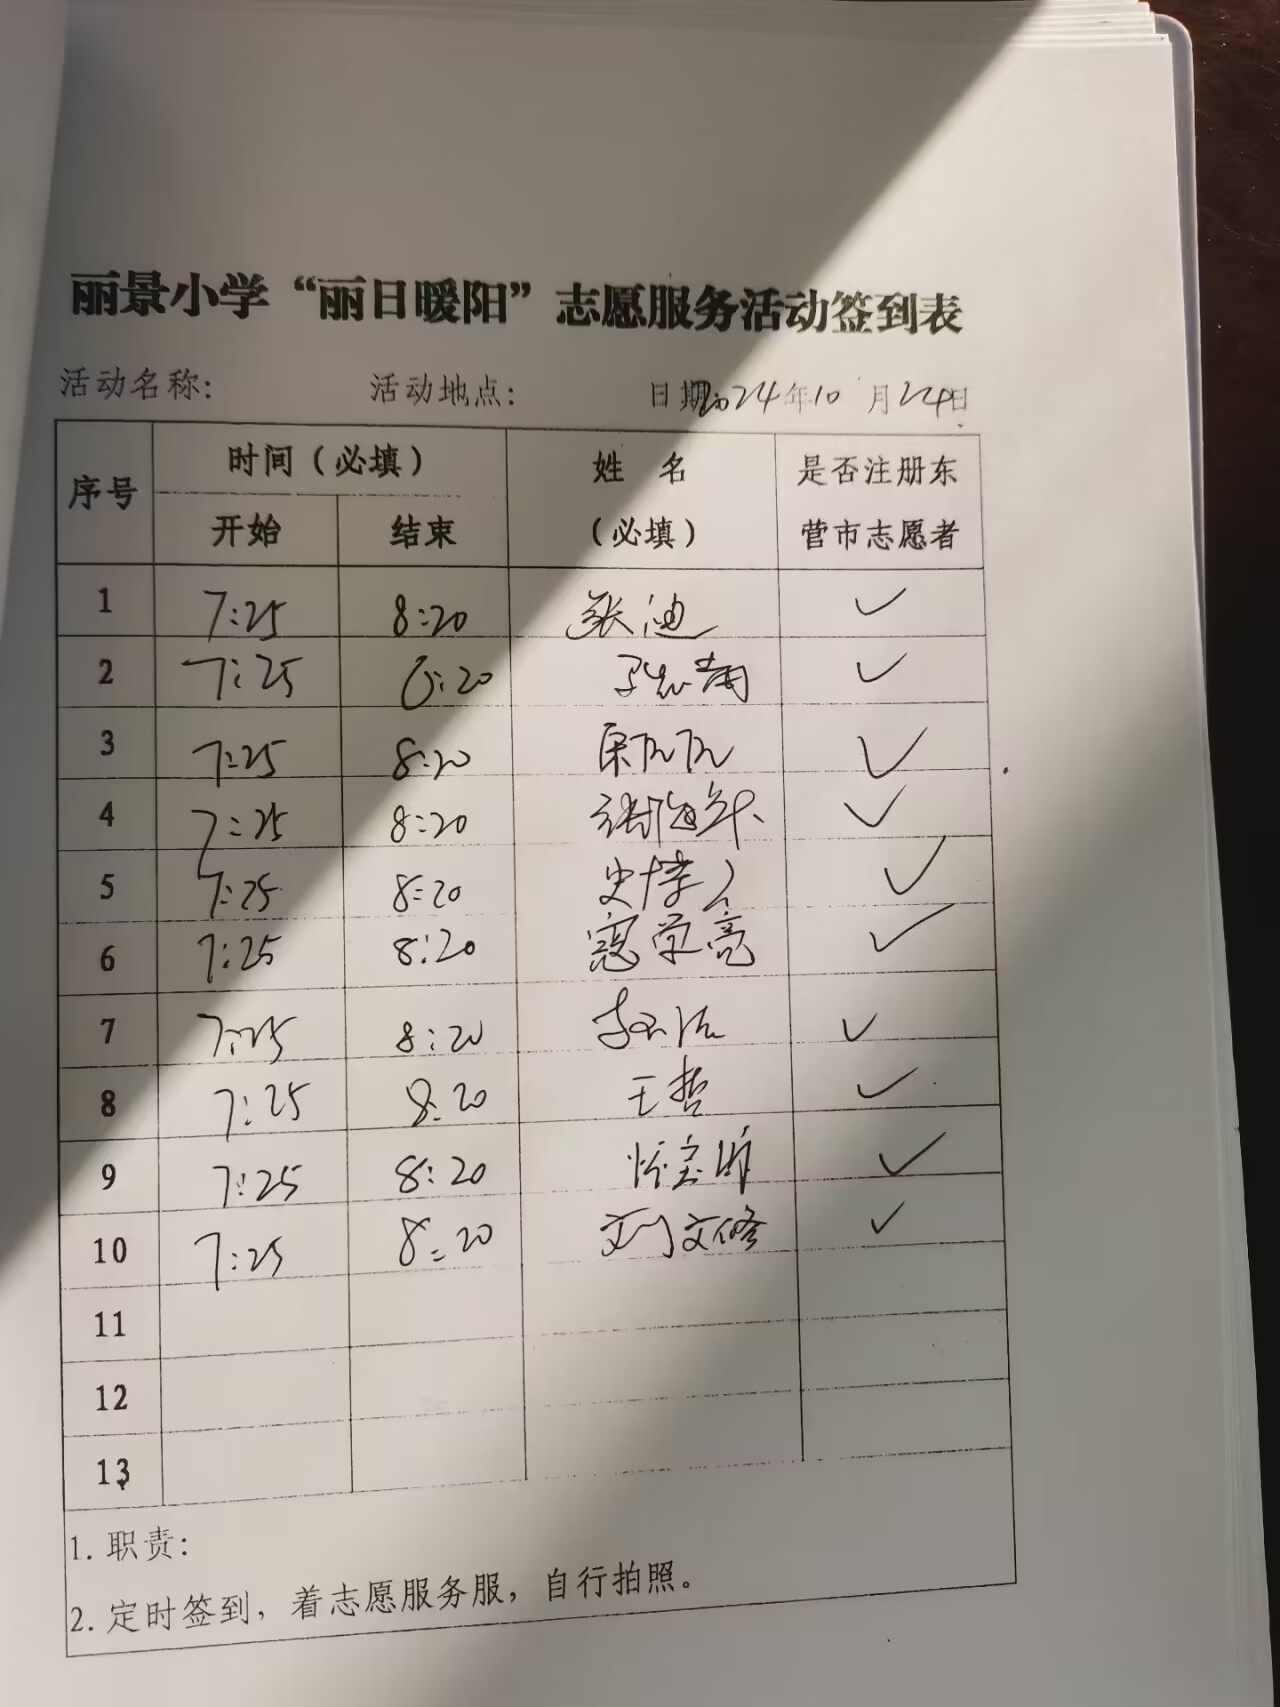 丽景小学“丽日暖阳”志愿服务活动签到表
活动名称： 活动地点： 日期：2024年10月24日
序号 时间（必填） 姓 名（必填） 是否注册东营市志愿者
开始 结束
1 7:25 8:20 张迪 ✓
2 7:25 8:20 ✓
3 7:25 8:20 ✓
4 7:25 8:20 ✓
5 7:25 8:20 ✓
6 7:25 8:20 寇学亮 ✓
7 7:25 8:20 ✓
8 7:25 8:20 王哲 ✓
9 7:25 8:20 ✓
10 7:25 8:20 刘文修 ✓
11
12
13
1. 职责：
2. 定时签到，着志愿服务服，自行拍照。